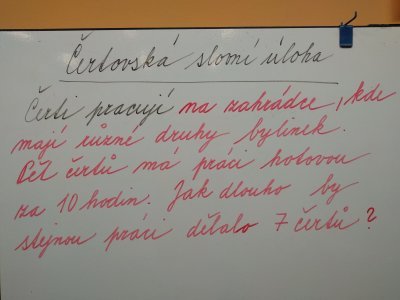 Čertovská slovní úloha
Čerti pracují na zahrádce, kde
mají různé druhy bylinek.
Pět čertů má práci hotovou
za 10 hodin. Jak dlouho by
stejnou práci dělalo 7 čertů?